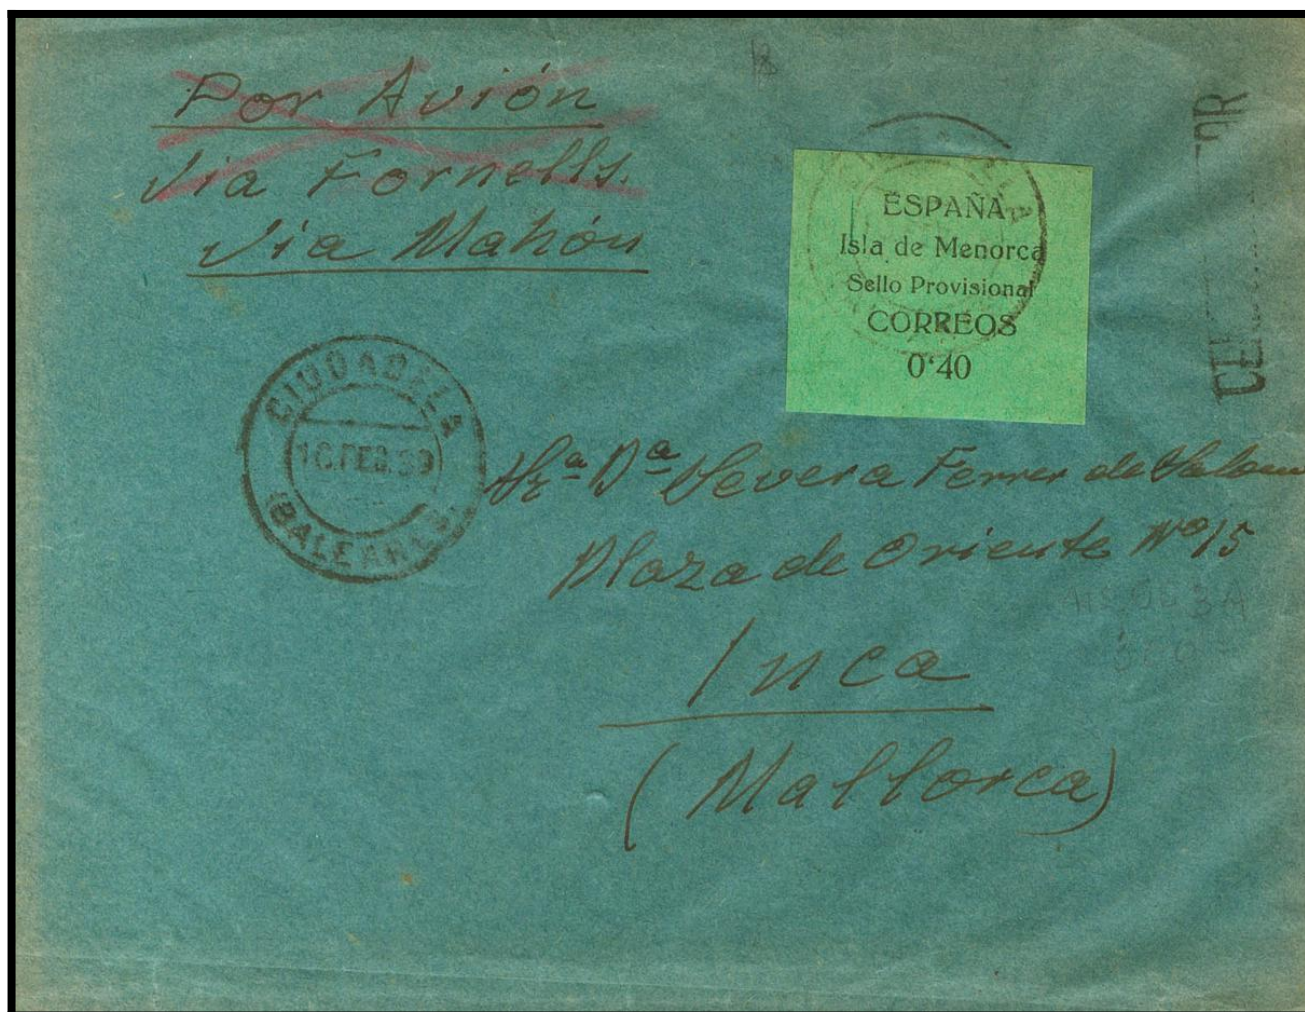 Por Avión
Via Fornells.
Via Mahón
ESPAÑA
Isla de Menorca
Sello Provisional
CORREOS
0'40
CIUDADELA
FEB.39
(BALEARES)
Sra Da Severa Ferrer de
Plaza de Oriente No 15
Inca
(Mallorca)